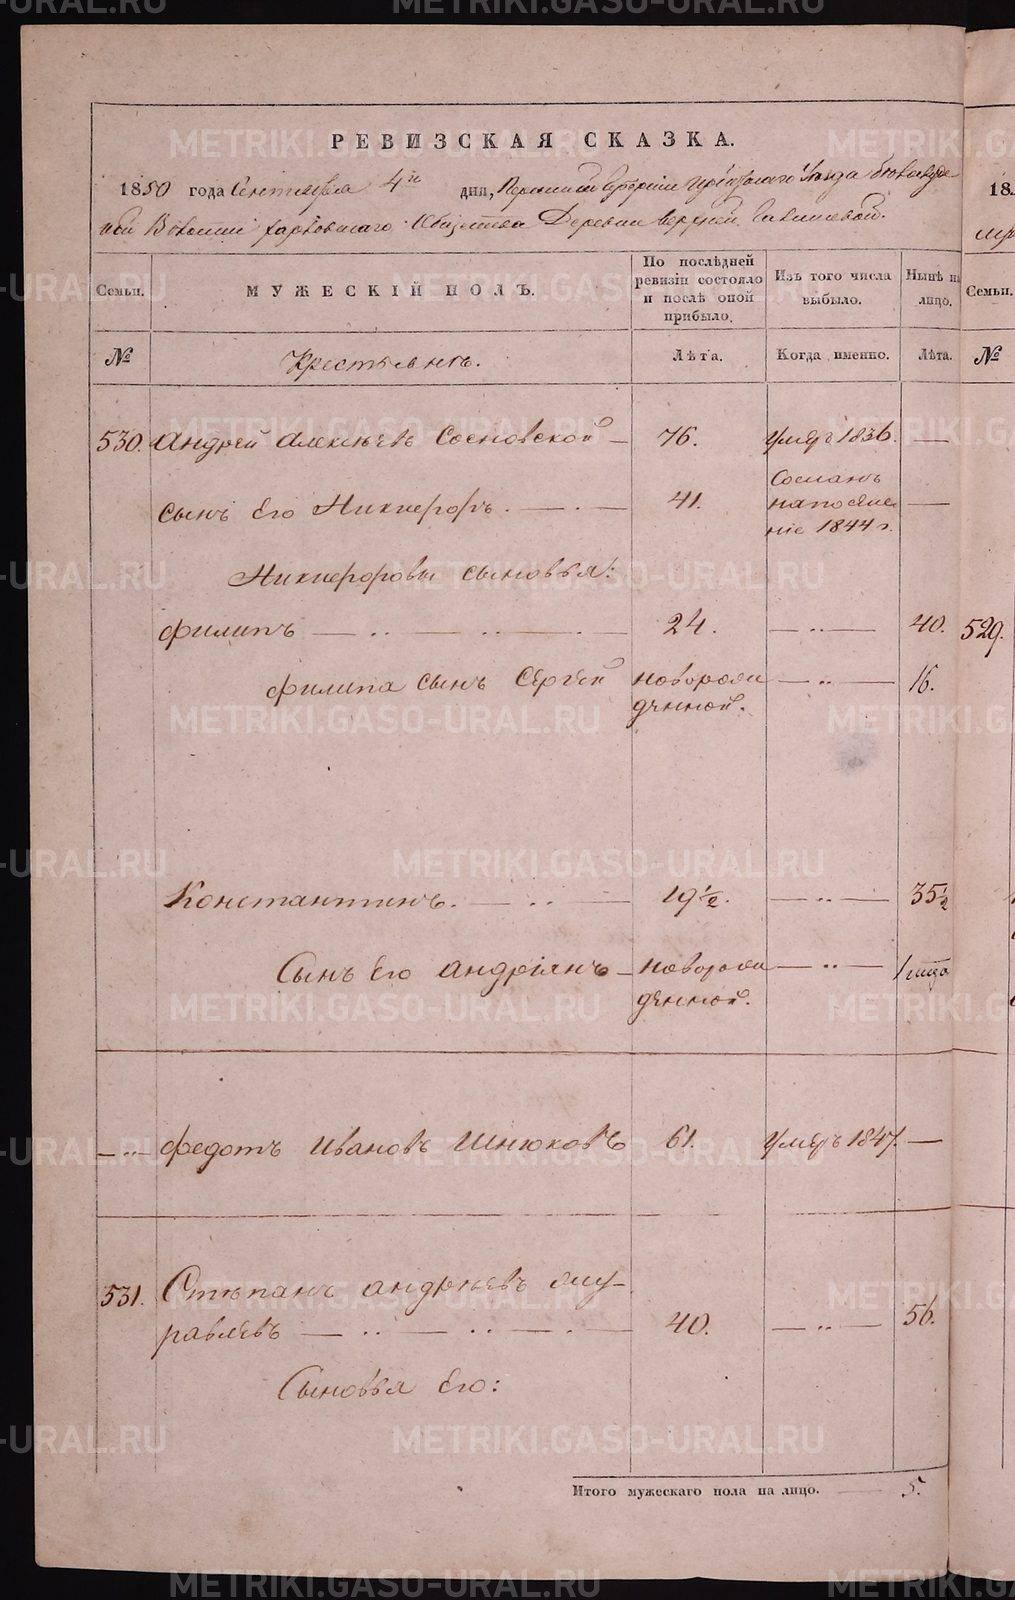 РЕВИЗСКАЯ СКАЗКА.
1850 года Сентября 4го дня, Пермской Губернии Ирбитскаго Уезда
ной Волости Общества Деревни
Семьи.
МУЖЕСКІЙ ПОЛЪ.
По послѣдней ревизіи состояло и послѣ оной прибыло.
Изъ того числа выбыло.
Нынѣ на лицо.
№
Крестьянъ.
Лѣта.
Когда именно.
Лѣта.
530. Андрей Алексѣевъ Сосновской 76. умеръ 1836.
Сынъ Его Никифоръ. 41. Сосланъ на поселеніе 1844 г.
Никифоровы сыновья:
Филипъ 24. 40.
Филипа сынъ Сергей новорожденной. 16.
Константинъ. 19 1/2. 35 1/2
Сынъ Его Андріянъ новорожденной. 1 года
Федотъ Ивановъ Шнюковъ 61. умеръ 1847.
531. Степанъ Андреевъ Жу-
равлевъ 40. 56.
Сыновья Его:
Итого мужескаго пола на лицо. 5.
18
Семьи.
№
529.
METRIKI.GASO-URAL.RU